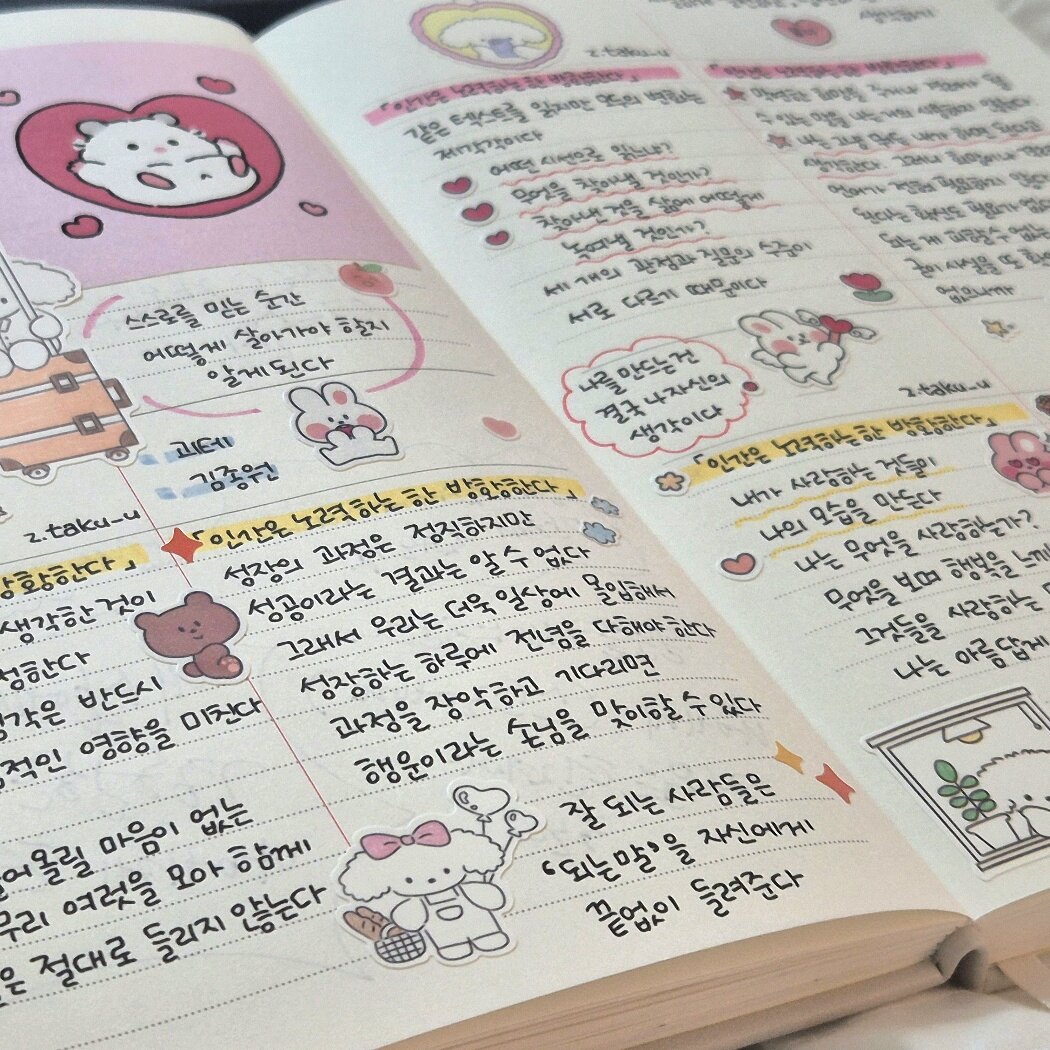 스스로를 믿는 순간
어떻게 살아가야 할지
알게 된다
괴테
김종원
z.taku_u
방황한다」
생각한 것이
정한다
생각은 반드시
적인 영향을 미친다
어올릴 마음이 없는
무리 여럿을 모아 함께
은 절대로 들리지 않는다
「인간은 노력하는 한 방황한다」
성장의 과정은 정직하지만
성공이라는 결과는 알 수 없다
그래서 우리는 더욱 일상에 몰입해서
성장하는 하루에 전념을 다해야 한다
과정을 장악하고 기다리면
행운이라는 손님을 맞이할 수 있다
잘 되는 사람들은
'되는 말'을 자신에게
끝없이 들려준다
z.taku_u
「인간은 노력하는 한 방황한다」
같은 텍스트를 읽지만 모두의 변화는
제각각이다
어떤 시선으로 읽는가?
무엇을 찾아낼 것인가?
찾아낸 것을 삶에 어떻게
녹여낼 것인가?
세 개의 관점과 질문의 수준이
서로 다르기 때문이다
나를 만드는 건
결국 나 자신의
생각이다
「인간은 노력하는 한 방황한다」
수 있는 말을
나는 그냥 무엇
언어가 전혀 필요하지
없으니까
z.taku_u
「인간은 노력하는 한 방황한다」
내가 사랑하는 것들이
나의 모습을 만든다
나는 무엇을 사랑하는가?
무엇을 보며 행복을 느끼
그것들을 사랑하는
나는 아름답게